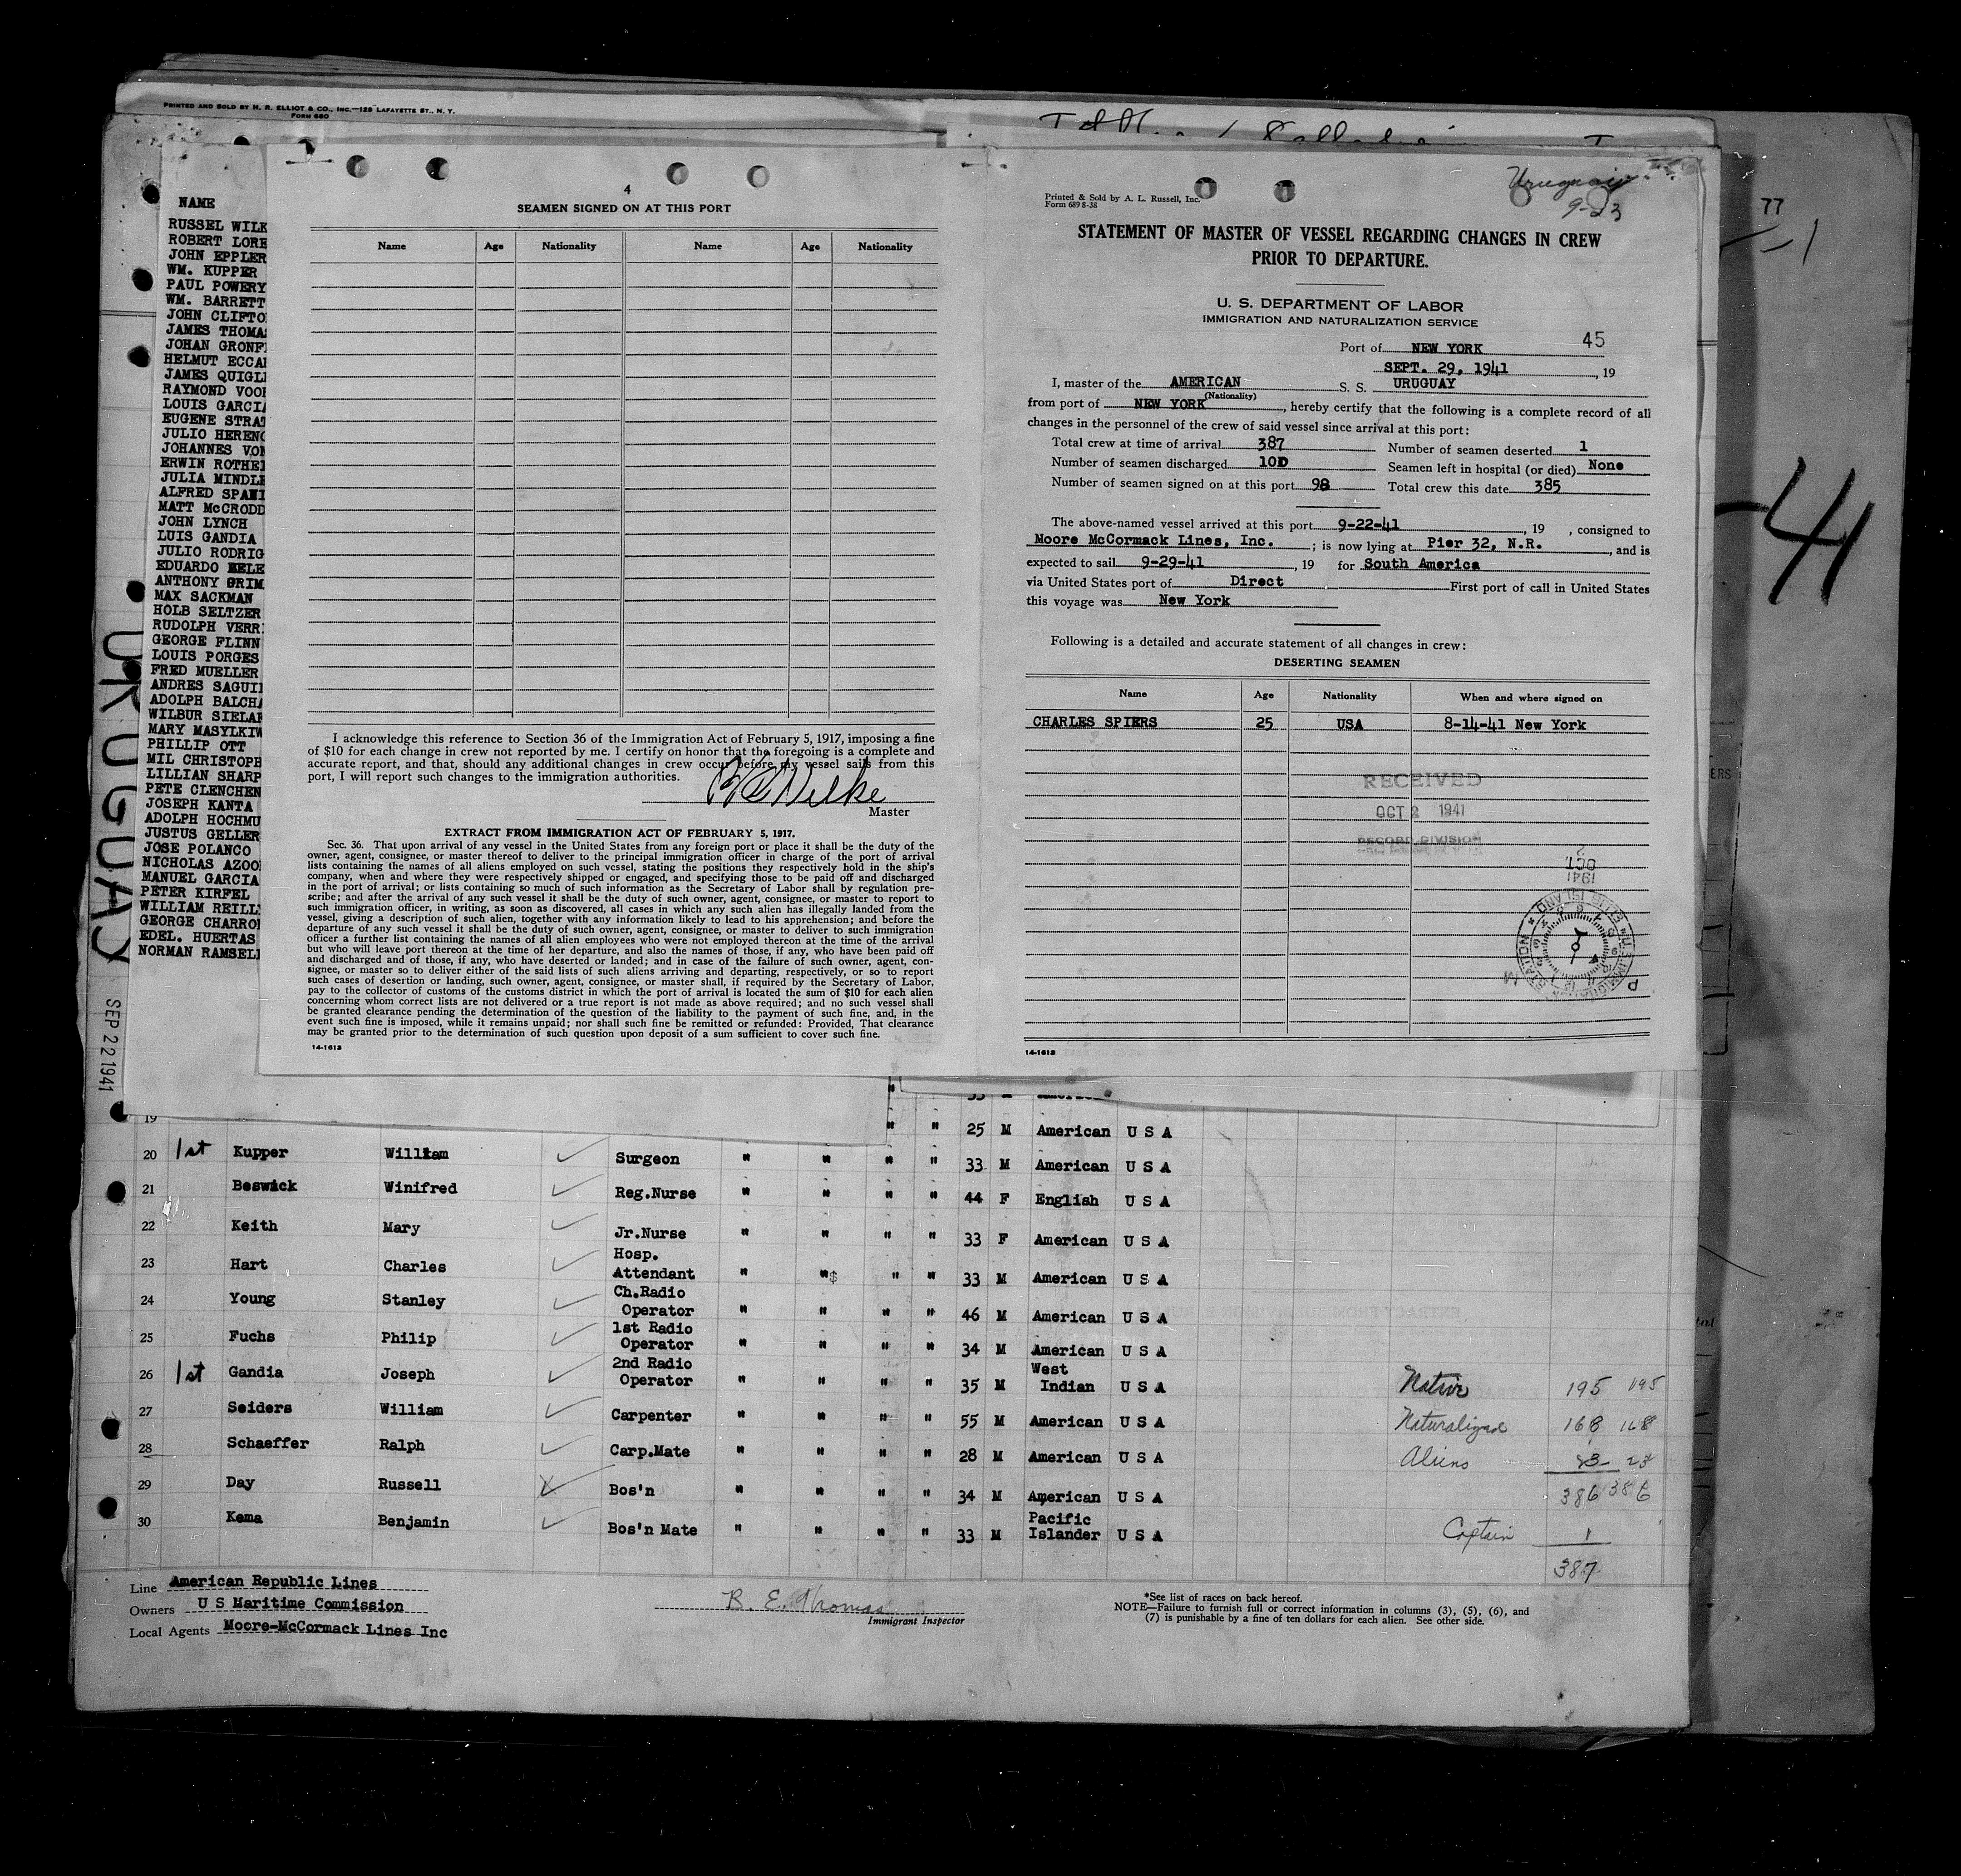 PRINTED AND SOLD BY H. R. ELLIOT & CO., INC.—128 LAFAYETTE ST., N. Y.
FORM 680
77
41
URUGUAY
SEP 22 1941
NAME
RUSSEL WILK
ROBERT LORE
JOHN EPPLER
WM. KUPPER
PAUL POWERY
WM. BARRETT
JOHN CLIFTO
JAMES THOMA
JOHAN GRONF
HELMUT ECCA
JAMES QUIGL
RAYMOND VOO
LOUIS GARCIA
EUGENE STRA
JULIO HEREN
JOHANNES VO
ERWIN ROTHE
JULIA MINDL
ALFRED SPAN
MATT McCRODD
JOHN LYNCH
LUIS GANDIA
JULIO RODRIG
EDUARDO
ANTHONY GRIM
MAX SACKMAN
HOLB SELTZER
RUDOLPH VERR
GEORGE FLINN
LOUIS PORGES
FRED MUELLER
ANDRES SAGUI
ADOLPH BALCHA
WILBUR SIELA
MARY MASYLKIW
PHILLIP OTT
MIL CHRISTOPH
LILLIAN SHARP
PETE CLENCHEN
JOSEPH KANTA
ADOLPH HOCHMU
JUSTUS GELLER
JOSE POLANCO
NICHOLAS AZOO
MANUEL GARCIA
PETER KIRFEL
WILLIAM REILL
GEORGE CHARRO
EDEL. HUERTAS
NORMAN RAMSEL
4
SEAMEN SIGNED ON AT THIS PORT
Name Age Nationality Name Age Nationality
I acknowledge this reference to Section 36 of the Immigration Act of February 5, 1917, imposing a fine
of $10 for each change in crew not reported by me. I certify on honor that the foregoing is a complete and
accurate report, and that, should any additional changes in crew occur before my vessel sails from this
port, I will report such changes to the immigration authorities.
Wilke
Master
EXTRACT FROM IMMIGRATION ACT OF FEBRUARY 5, 1917.
Sec. 36. That upon arrival of any vessel in the United States from any foreign port or place it shall be the duty of the
owner, agent, consignee, or master thereof to deliver to the principal immigration officer in charge of the port of arrival
lists containing the names of all aliens employed on such vessel, stating the positions they respectively hold in the ship's
company, when and where they were respectively shipped or engaged, and specifying those to be paid off and discharged
in the port of arrival; or lists containing so much of such information as the Secretary of Labor shall by regulation pre-
scribe; and after the arrival of any such vessel it shall be the duty of such owner, agent, consignee, or master to report to
such immigration officer, in writing, as soon as discovered, all cases in which any such alien has illegally landed from the
vessel, giving a description of such alien, together with any information likely to lead to his apprehension; and before the
departure of any such vessel it shall be the duty of such owner, agent, consignee, or master to deliver to such immigration
officer a further list containing the names of all alien employees who were not employed thereon at the time of the arrival
but who will leave port thereon at the time of her departure, and also the names of those, if any, who have been paid off
and discharged and of those, if any, who have deserted or landed; and in case of the failure of such owner, agent, con-
signee, or master so to deliver either of the said lists of such aliens arriving and departing, respectively, or so to report
such cases of desertion or landing, such owner, agent, consignee, or master shall, if required by the Secretary of Labor,
pay to the collector of customs of the customs district in which the port of arrival is located the sum of $10 for each alien
concerning whom correct lists are not delivered or a true report is not made as above required; and no such vessel shall
be granted clearance pending the determination of the question of the liability to the payment of such fine, and, in the
event such fine is imposed, while it remains unpaid; nor shall such fine be remitted or refunded: Provided, That clearance
may be granted prior to the determination of such question upon deposit of a sum sufficient to cover such fine.
14-1613
Uruguay
9-23
Printed & Sold by A. L. Russell, Inc.
Form 689 8-38
STATEMENT OF MASTER OF VESSEL REGARDING CHANGES IN CREW
PRIOR TO DEPARTURE.
U. S. DEPARTMENT OF LABOR
IMMIGRATION AND NATURALIZATION SERVICE
45
Port of NEW YORK
SEPT. 29, 1941, 19
I, master of the AMERICAN S. S. URUGUAY
(Nationality)
from port of NEW YORK, hereby certify that the following is a complete record of all
changes in the personnel of the crew of said vessel since arrival at this port:
Total crew at time of arrival 387 Number of seamen deserted 1
Number of seamen discharged 100 Seamen left in hospital (or died) None
Number of seamen signed on at this port 98 Total crew this date 385
The above-named vessel arrived at this port 9-22-41, 19 , consigned to
Moore McCormack Lines, Inc. ; is now lying at Pier 32, N.R., and is
expected to sail 9-29-41, 19 for South America
via United States port of Direct First port of call in United States
this voyage was New York
Following is a detailed and accurate statement of all changes in crew:
DESERTING SEAMEN
Name Age Nationality When and where signed on
CHARLES SPIERS 25 USA 8-14-41 New York
RECEIVED
OCT 2 1941
RECORD DIVISION
OCT. 2 1941
U.S. IMMIGRATION STATION * ELLIS ISLAND *
14-1613
19 " " 25 M American U S A
20 1st Kupper William Surgeon " " " " 33 M American U S A
21 Beswick Winifred Reg.Nurse " " " " 44 F English U S A
22 Keith Mary Jr.Nurse " " " " 33 F American U S A
23 Hart Charles Hosp. Attendant " " " " 33 M American U S A
24 Young Stanley Ch.Radio Operator " " " " 46 M American U S A
25 Fuchs Philip 1st Radio Operator " " " " 34 M American U S A
26 1st Gandia Joseph 2nd Radio Operator " " " " 35 M West Indian U S A Native 195 195
27 Seiders William Carpenter " " " " 55 M American U S A Naturalized 168 168
28 Schaeffer Ralph Carp.Mate " " " " 28 M American U S A Aliens 23 23
29 Day Russell Bos'n " " " " 34 M American U S A 386 386
30 Kema Benjamin Bos'n Mate " " " " 33 M Pacific Islander U S A Captain 1
387
Line American Republic Lines
Owners U S Maritime Commission
Local Agents Moore-McCormack Lines Inc
B. E. Thomas
Immigrant Inspector
*See list of races on back hereof.
NOTE—Failure to furnish full or correct information in columns (3), (5), (6), and
(7) is punishable by a fine of ten dollars for each alien. See other side.